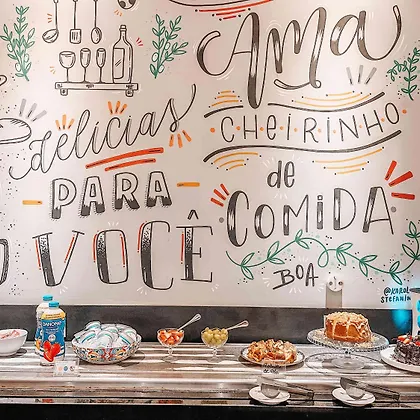 delícias
PARA
VOCÊ
Ama
CHEIRINHO
de
COMIDA
BOA
@KAROL
STEFANINI
DANONE